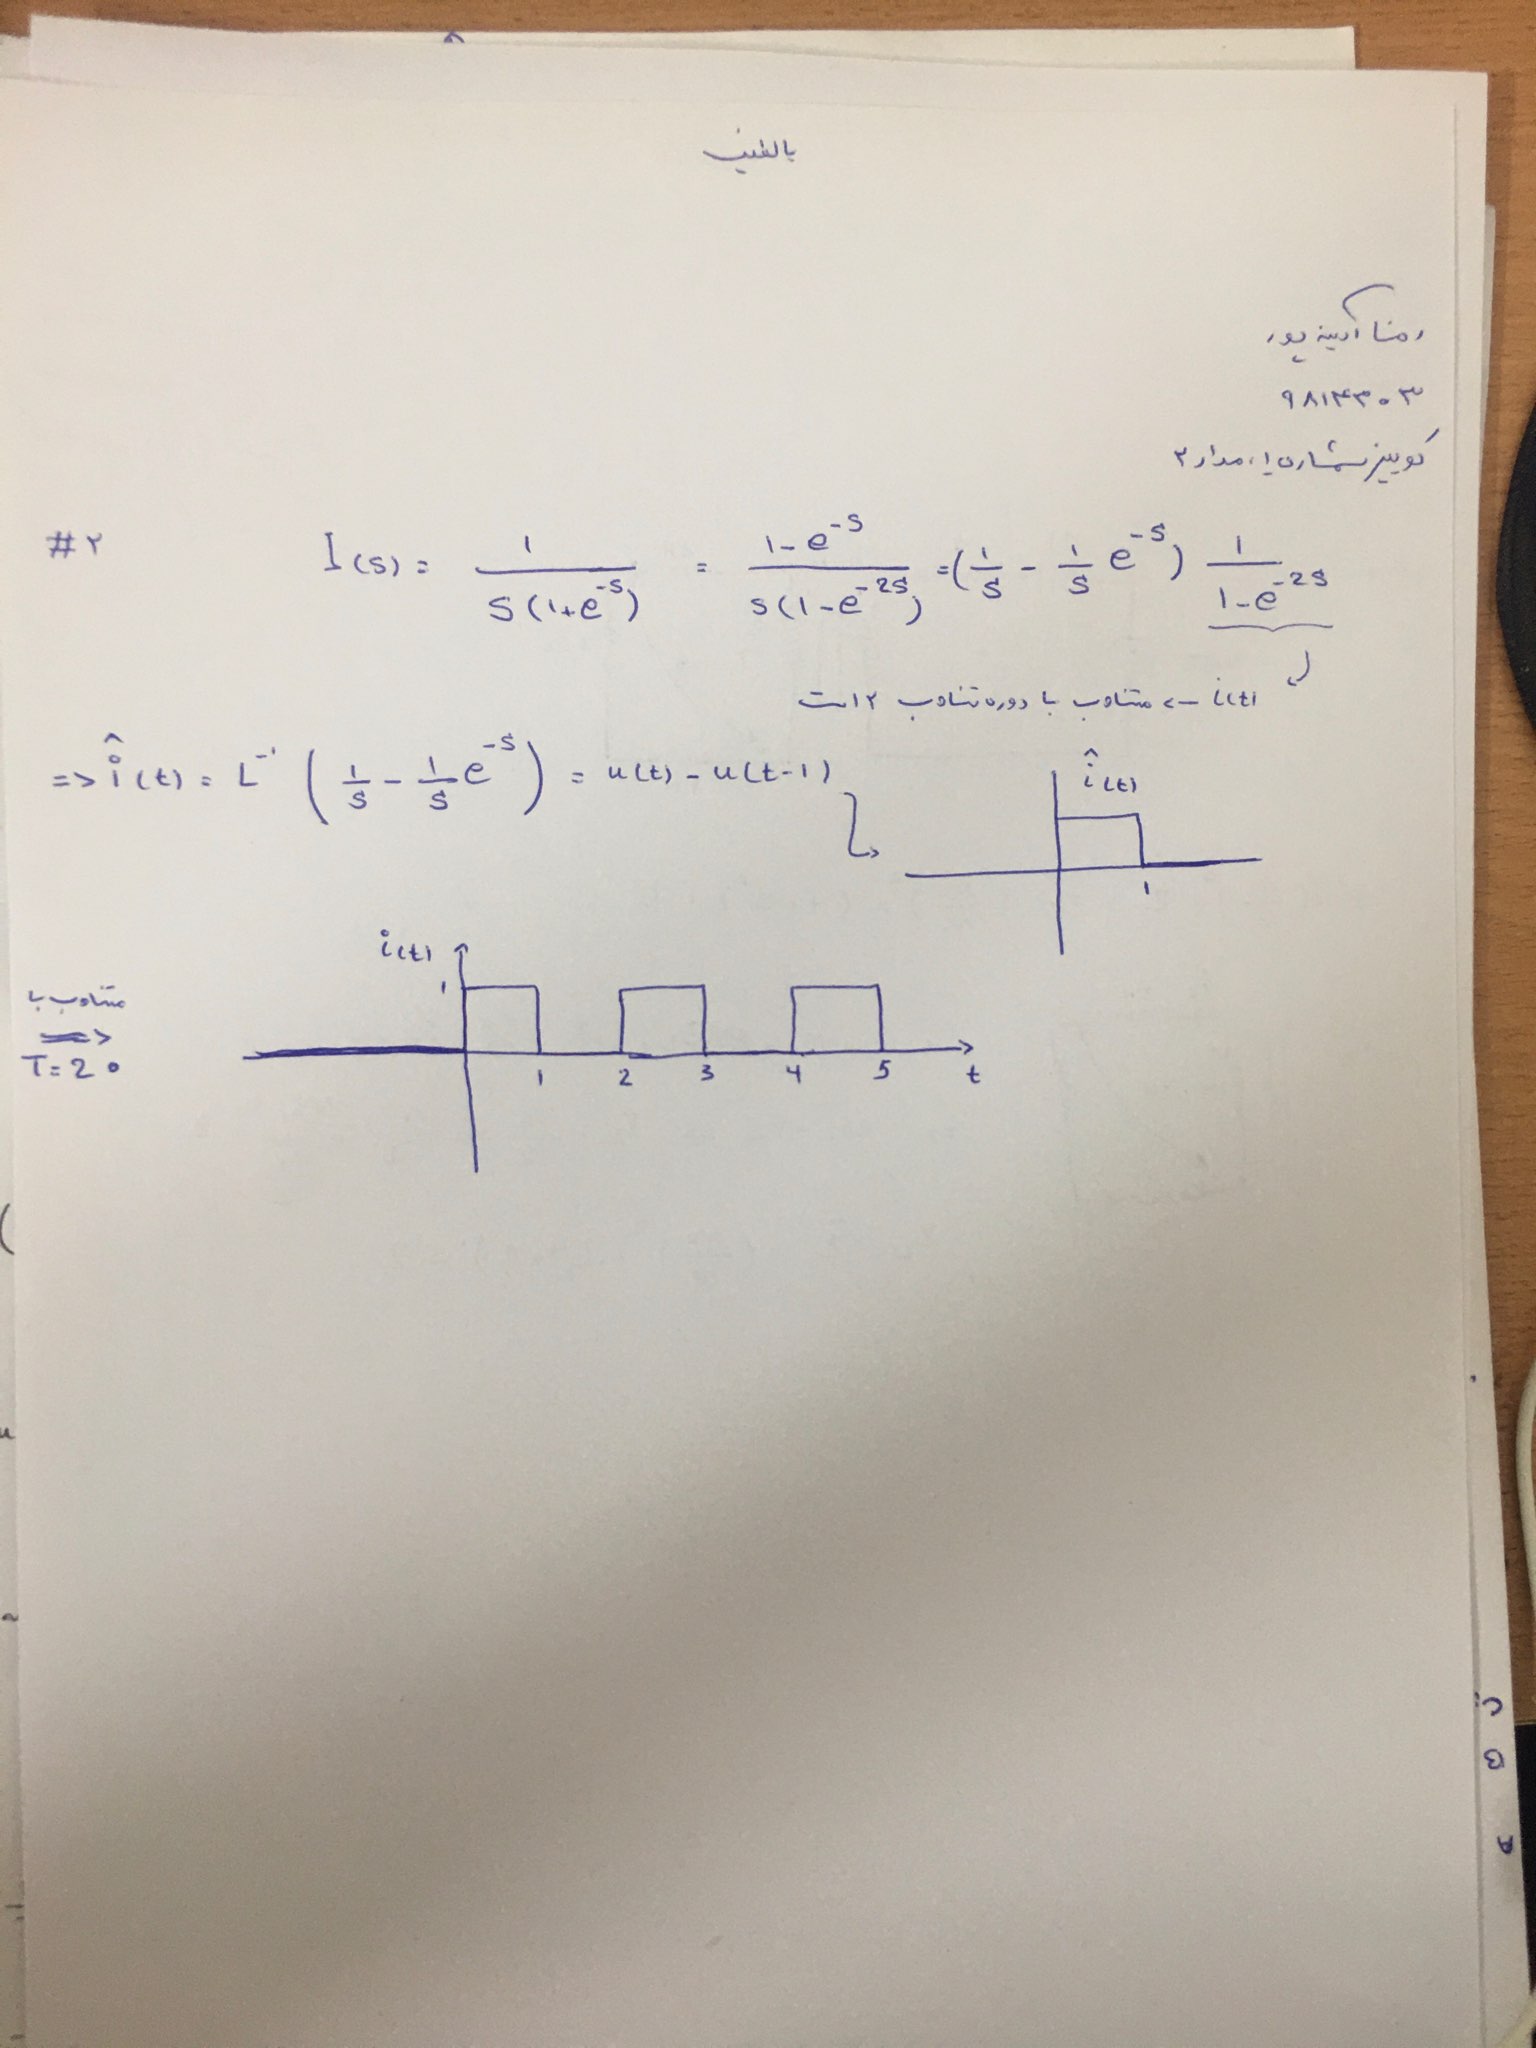 رضا آئینه پور
۹۸۱۴۳۰۳
کوییز شماره‌ی ۱، مدار ۲
#۲ I(s) = 1 / s(1+e^-s) = 1-e^-s / s(1-e^-2s) = (1/s - 1/s e^-s) 1 / 1-e^-2s
i(t) -> متناوب با دوره تناوب ۲ است
=> î(t) = L^-1 (1/s - 1/s e^-s) = u(t) - u(t-1)
î(t)
1
i(t)
متناوب با
=>
T=2
1
1 2 3 4 5 t
C
B
A